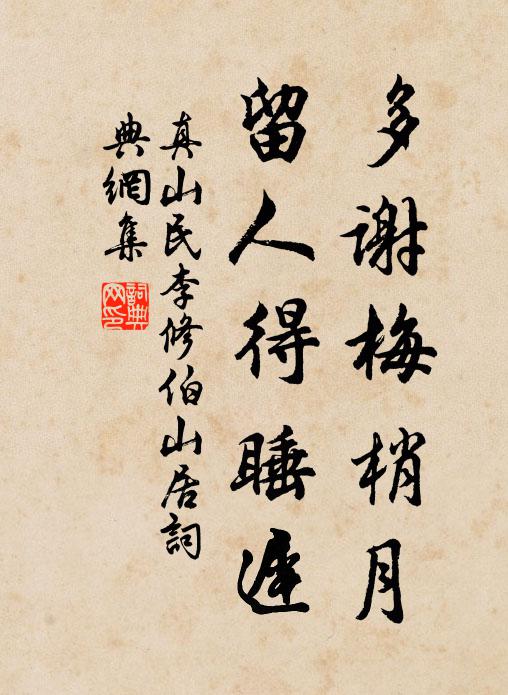 多謝梅梢月
留人得睡遲
真山民李修伯山居詞
典網集
詞典
网印